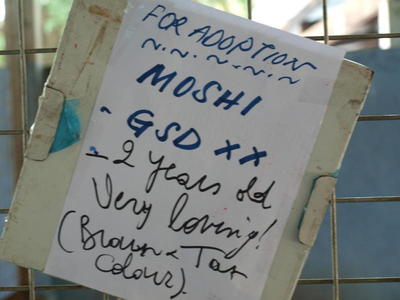 FOR ADOPTION
~.~.~.~.~.~
MOSHI
- GSD xx
- 2 years old
Very loving!
(Brown & Tan
colour).